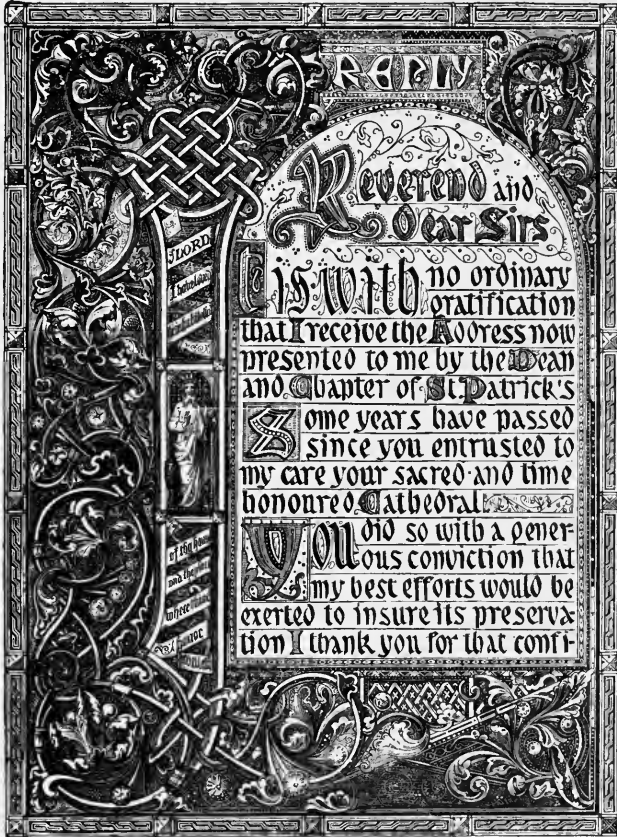 REPLY
Reverend and
Dear Sirs
It is with no ordinary
gratification
that I receive the Address now
presented to me by the Dean
and Chapter of St. Patrick's
Some years have passed
since you entrusted to
my care your sacred and time
honoured Cathedral
You did so with a gener-
ous conviction that
my best efforts would be
exerted to insure its preserva-
tion I thank you for that confi-
LORD
I have loved
of thy house
and the place
where thine